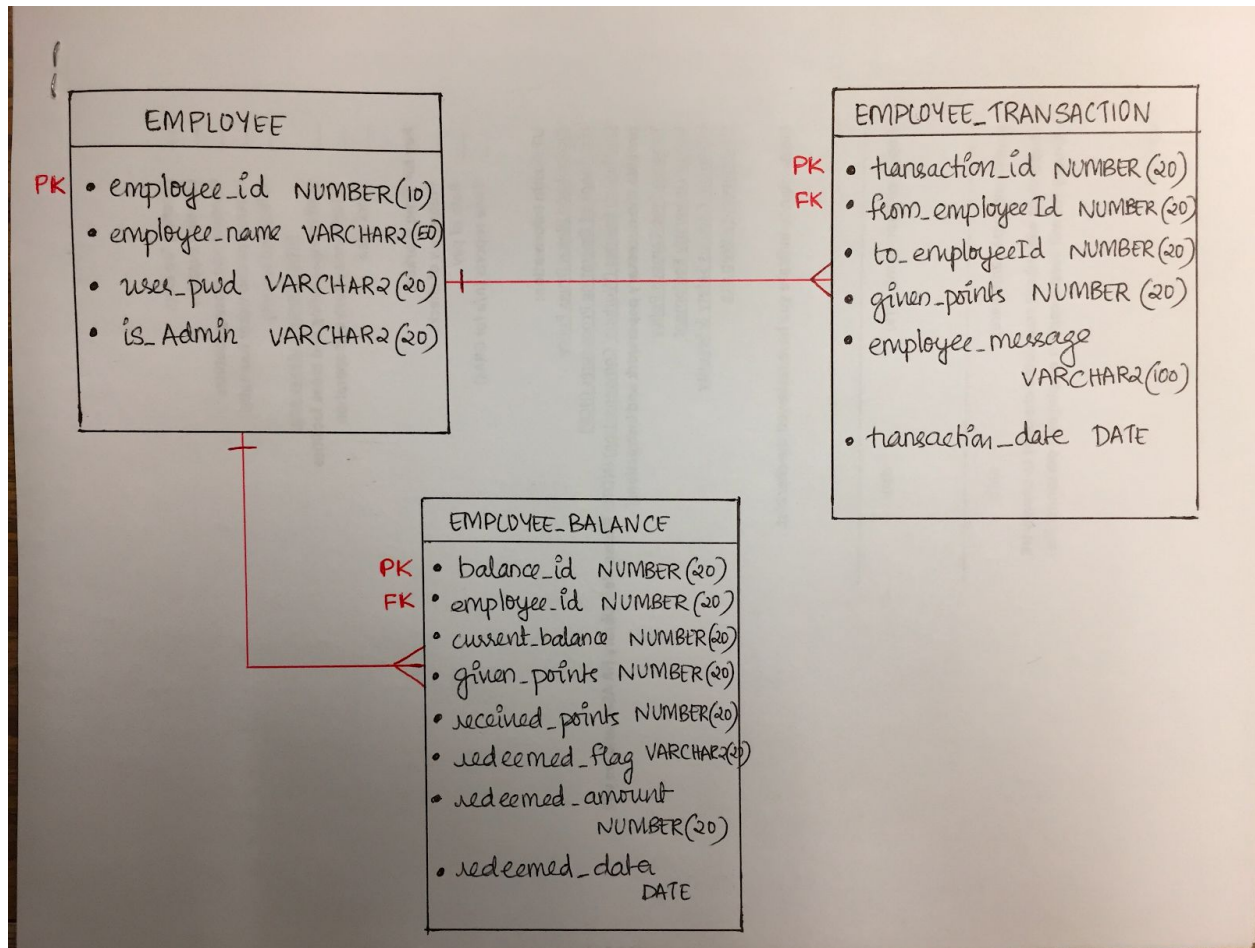 EMPLOYEE
PK • employee_id NUMBER(10)
• employee_name VARCHAR2(50)
• user_pwd VARCHAR2(20)
• is_Admin VARCHAR2(20)
EMPLOYEE_TRANSACTION
PK • transaction_id NUMBER(20)
FK • from_employeeId NUMBER(20)
• to_employeeId NUMBER(20)
• given_points NUMBER(20)
• employee_message
VARCHAR2(100)
• transaction_date DATE
EMPLOYEE_BALANCE
PK • balance_id NUMBER(20)
FK • employee_id NUMBER(20)
• current_balance NUMBER(20)
• given_points NUMBER(20)
• received_points NUMBER(20)
• redeemed_flag VARCHAR2(20)
• redeemed_amount
NUMBER(20)
• redeemed_data
DATE